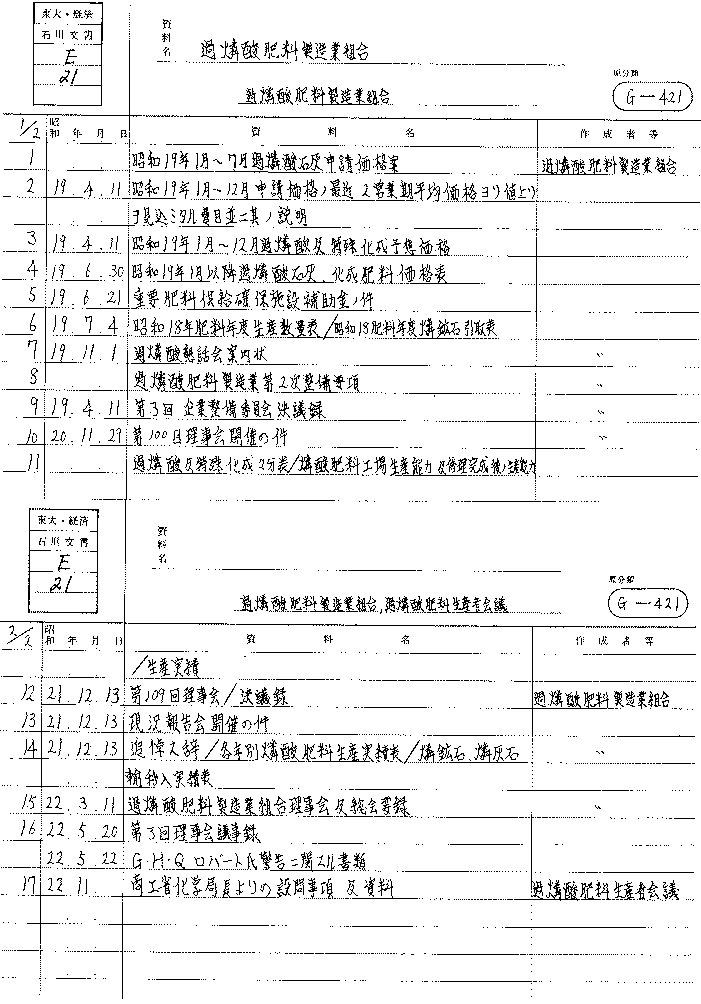 東大・経済
石川文書
E
21
資料名
過燐酸肥料製造業組合
過燐酸肥料製造業組合
原分類
G-421
1/2 昭和 年 月 日 資料名 作成者等
1 昭和19年1月～7月過燐酸石灰申請価格案 過燐酸肥料製造業組合
2 19.4.11 昭和19年1月～12月申請価格ノ最近2営業期平均価格ヨリ値上リ
ヲ見込ミタル費目並ニ其ノ説明
3 19.4.11 昭和19年1月～12月過燐酸及特殊化成予想価格
4 19.6.30 昭和19年1月以降過燐酸石灰、化成肥料価格表
5 19.6.21 重要肥料供給確保施設補助金ノ件
6 19.7.4 昭和18年肥料年度生産数量表/昭和18肥料年度燐鉱石引取表
7 19.11.1 過燐酸懇話会案内状 〃
8 過燐酸肥料製造業第2次整備要項 〃
9 19.4.11 第3回企業整備委員会決議録 〃
10 20.11.29 第100回理事会開催の件 〃
11 過燐酸及特殊化成 /燐酸肥料工場生産能力及修理完成後ノ生産能力
東大・経済
石川文書
E
21
資料名
原分類
過燐酸肥料製造業組合,過燐酸肥料生産者会議
G-421
2/2 昭和 年 月 日 資料名 作成者等
/生産実積
12 21.12.13 第109回理事会/決議録 過燐酸肥料製造業組合
13 21.12.13 現況報告会開催の件
14 21.12.13 /各年別燐酸肥料生産実積表/燐鉱石、燐灰石 〃
輸移入実積表
15 22.3.11 過燐酸肥料製造業組合理事会及総会要録 〃
16 22.5.20 第3回理事会議事録
22.5.22 G・H・Q ロバート氏警告ニ関スル書類
17 22.11 商工省化学局長よりの設問事項及資料 過燐酸肥料生産者会議